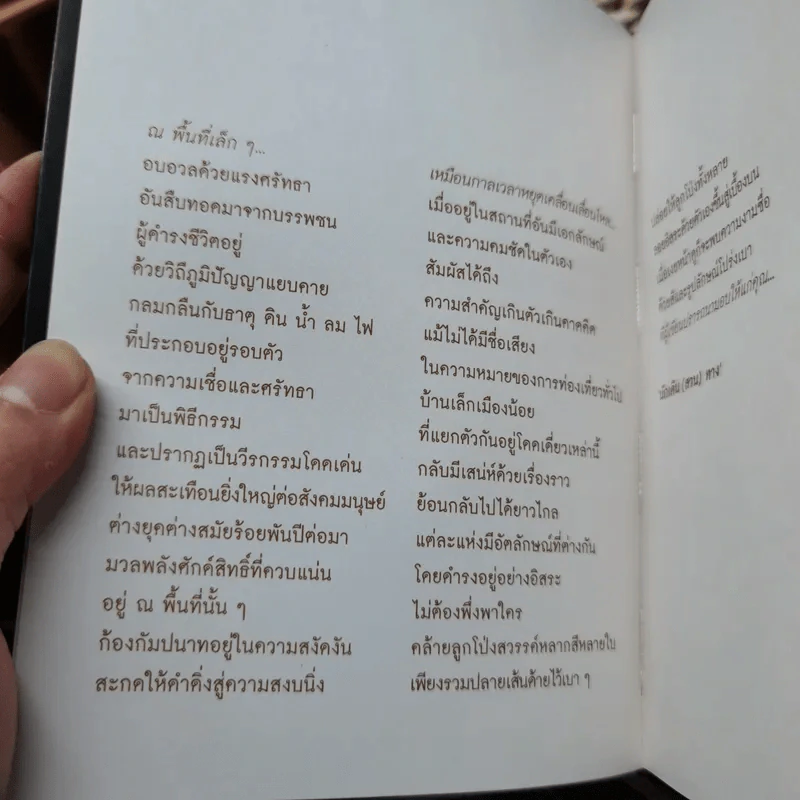 ณ พื้นที่เล็ก ๆ...
อบอวลด้วยแรงศรัทธา
อันสืบทอดมาจากบรรพชน
ผู้ดำรงชีวิตอยู่
ด้วยวิถีภูมิปัญญาแยบคาย
กลมกลืนกับธาตุ ดิน น้ำ ลม ไฟ
ที่ประกอบอยู่รอบตัว
จากความเชื่อและศรัทธา
มาเป็นพิธีกรรม
และปรากฏเป็นวีรกรรมโดดเด่น
ให้ผลสะเทือนยิ่งใหญ่ต่อสังคมมนุษย์
ต่างยุคต่างสมัยร้อยพันปีต่อมา
มวลพลังศักดิ์สิทธิ์ที่ควบแน่น
อยู่ ณ พื้นที่นั้น ๆ
ก้องกัมปนาทอยู่ในความสงัดงัน
สะกดให้ดำดิ่งสู่ความสงบนิ่ง
เหมือนกาลเวลาหยุดเคลื่อนเลื่อนไหล...
เมื่ออยู่ในสถานที่อันมีเอกลักษณ์
และความคมชัดในตัวเอง
สัมผัสได้ถึง
ความสำคัญเกินตัวเกินคาดคิด
แม้ไม่ได้มีชื่อเสียง
ในความหมายของการท่องเที่ยวทั่วไป
บ้านเล็กเมืองน้อย
ที่แยกตัวกันอยู่โดดเดี่ยวเหล่านี้
กลับมีเสน่ห์ด้วยเรื่องราว
ย้อนกลับไปได้ยาวไกล
แต่ละแห่งมีอัตลักษณ์ที่ต่างกัน
โดยดำรงอยู่อย่างอิสระ
ไม่ต้องพึ่งพาใคร
คล้ายลูกโป่งสวรรค์หลากสีหลายใบ
เพียงรวมปลายเส้นด้ายไว้เบา ๆ
ปล่อยให้ลูกโป่งทั้งหลาย
ลอยอิสระด้วยตัวเองขึ้นสู่เบื้องบน
เมื่อเงยหน้าดูก็จะพบความงามซื่อ
ด้วยสีและรูปลักษณ์โปร่งเบา
ที่ผู้เขียนปรารถนามอบให้แก่คุณ...
'นักเดิน (สวน) ทาง'